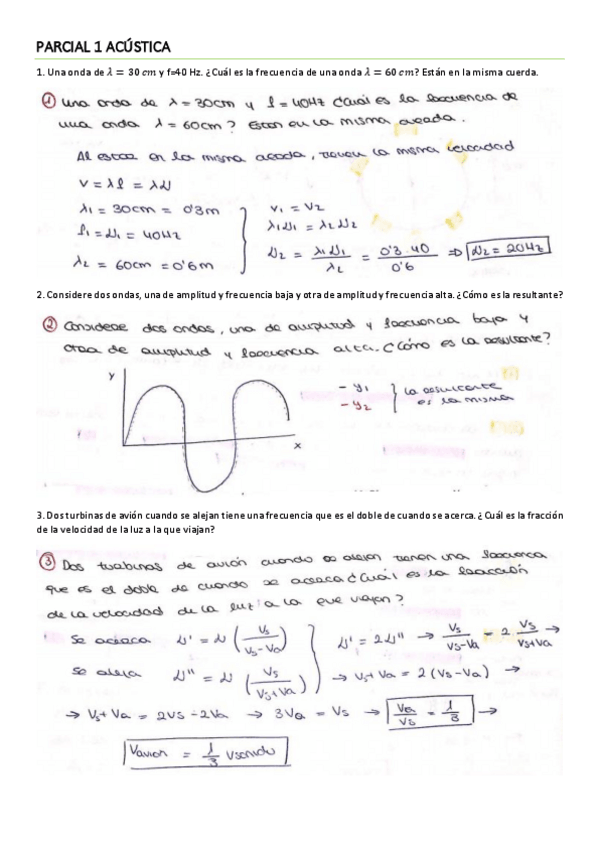 PARCIAL 1 ACÚSTICA
1. Una onda de λ = 30 cm y f=40 Hz. ¿Cuál es la frecuencia de una onda λ = 60 cm? Están en la misma cuerda.
① Una onda de λ = 30cm y f = 40Hz ¿Cuál es la frecuencia de
una onda λ = 60cm? Están en la misma cuerda.
Al estar en la misma cuerda, tienen la misma velocidad
V = λf = λν
λ1 = 30cm = 0'3m
f1 = ν1 = 40Hz
λ2 = 60cm = 0'6m
V1 = V2
λ1ν1 = λ2ν2
ν2 = λ1ν1 / λ2 = 0'3·40 / 0'6 ⇒ ν2 = 20Hz
2. Considere dos ondas, una de amplitud y frecuencia baja y otra de amplitud y frecuencia alta. ¿Cómo es la resultante?
② Considere dos ondas, una de amplitud y frecuencia baja y
otra de amplitud y frecuencia alta. ¿Cómo es la resultante?
y
x
- y1
- y2
la resultante
es la misma
3. Dos turbinas de avión cuando se alejan tiene una frecuencia que es el doble de cuando se acerca. ¿Cuál es la fracción
de la velocidad de la luz a la que viajan?
③ Dos turbinas de avión cuando se alejan tienen una frecuencia
que es el doble de cuando se acerca ¿Cuál es la fracción
de la velocidad de la luz a la que viajan?
Se acerca ν' = ν (Vs / Vs - Va)
Se aleja ν'' = ν (Vs / Vs + Va)
ν' = 2ν'' → Vs / Vs - Va = 2 Vs / Vs + Va →
→ Vs + Va = 2 (Vs - Va) →
→ Vs + Va = 2Vs - 2Va → 3Va = Vs → Va / Vs = 1 / 3 →
Vavion = 1/3 Vsonido